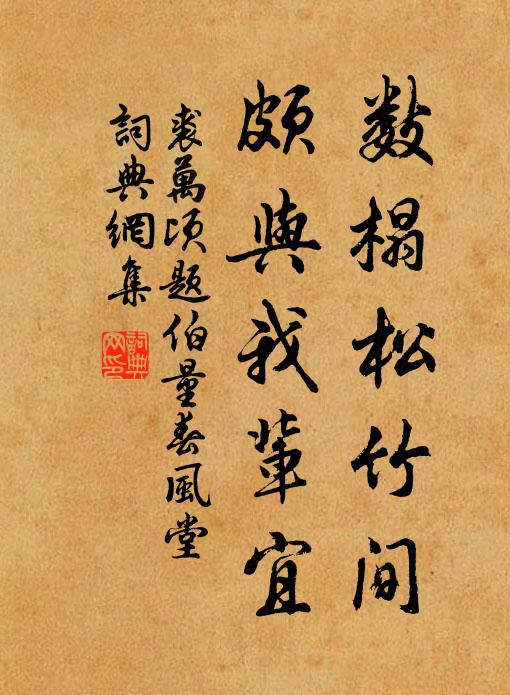 數榻松竹间
頗與我輩宜
裘萬頃题伯量春風堂
詞典網集
詞典
网印